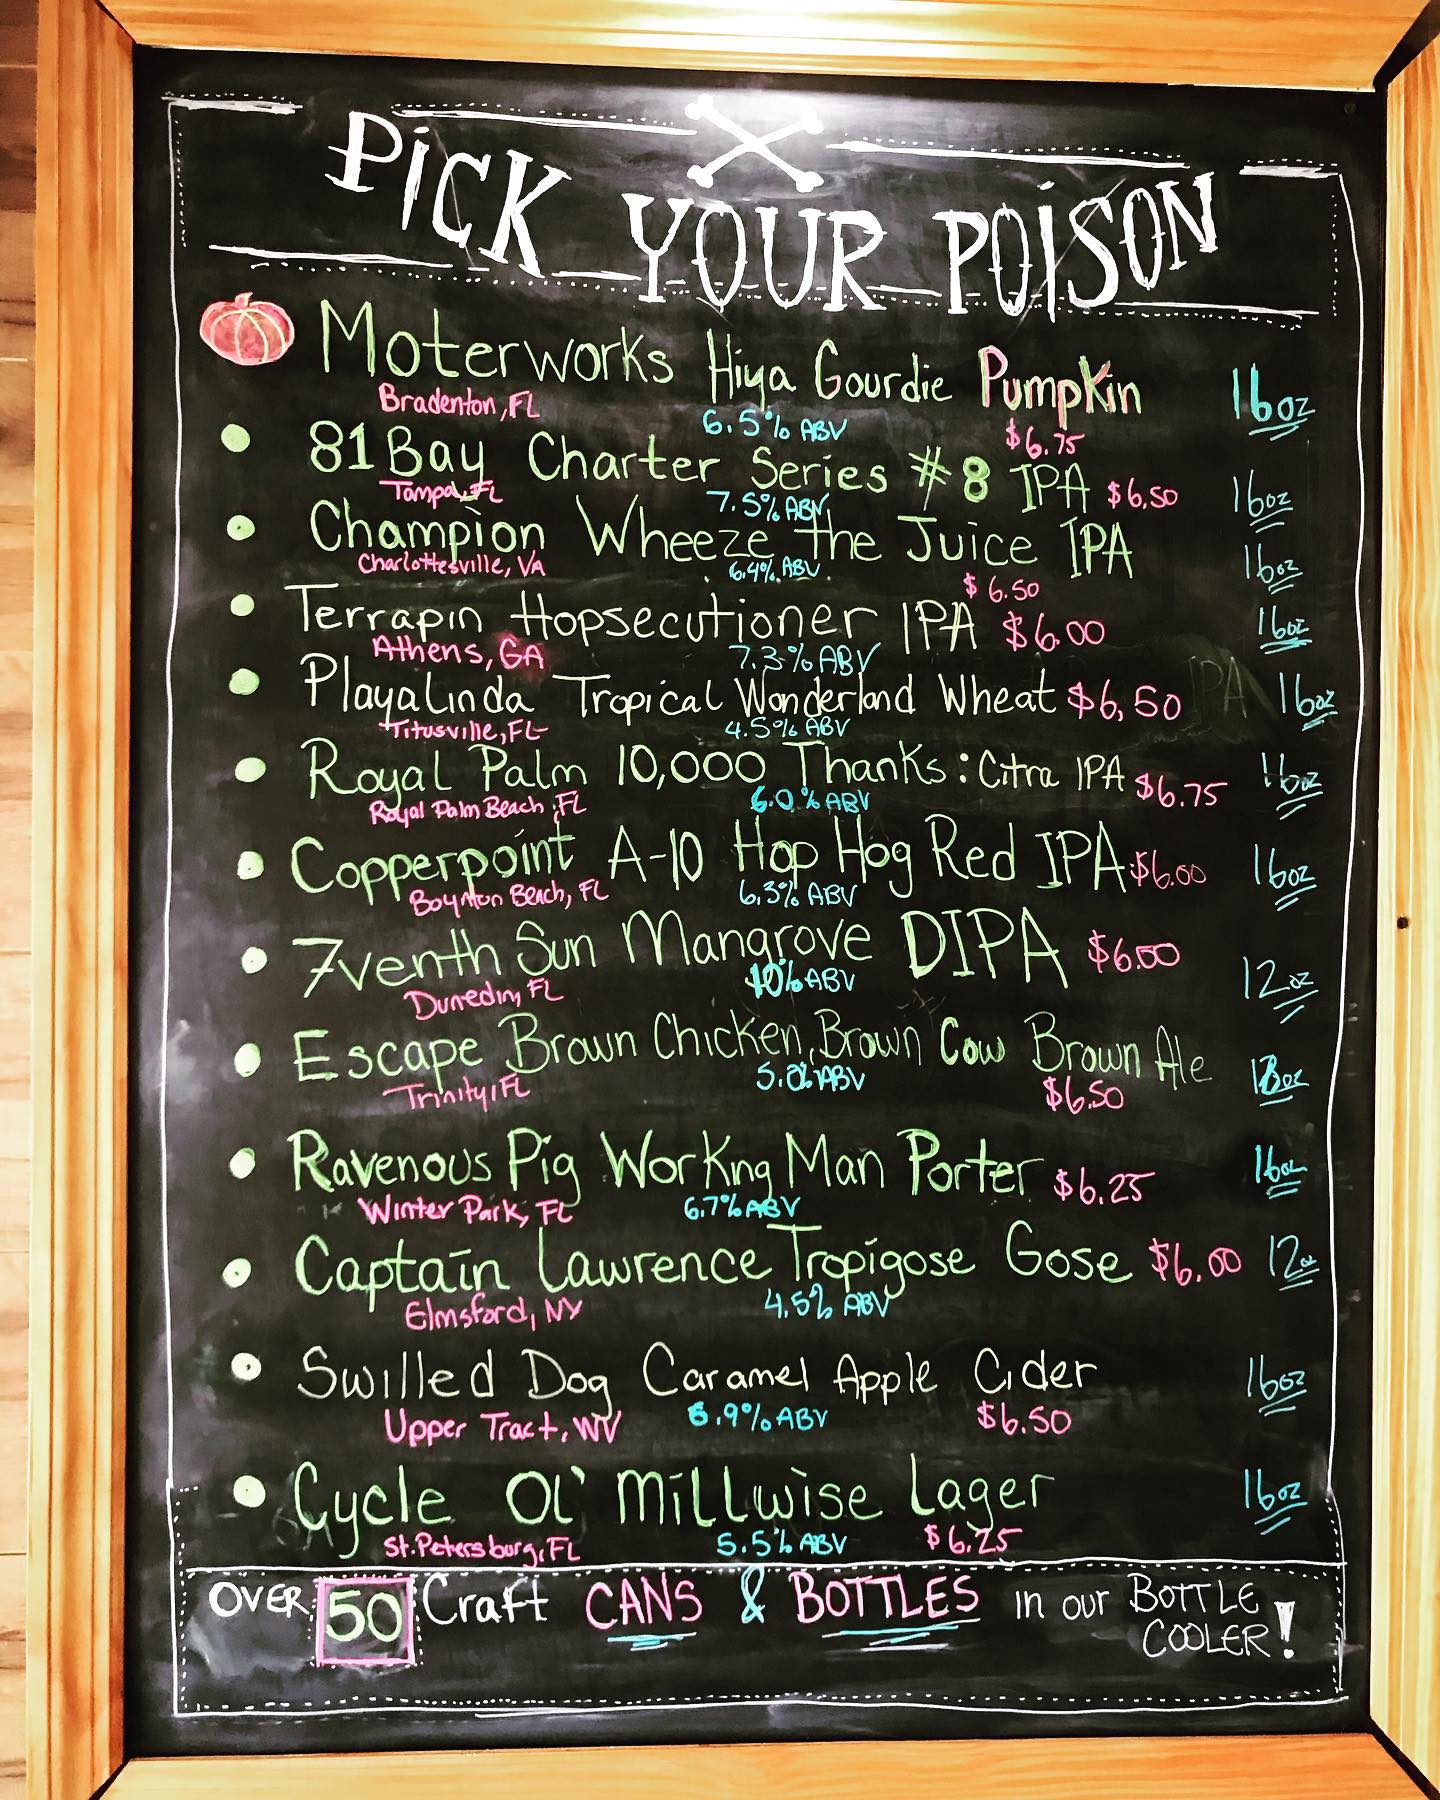 PiCK YOUR POiSON
Moterworks Hiya Gourdie Pumpkin 16oz
Bradenton, FL 6.5% ABV $6.75
81 Bay Charter Series #8 IPA $6.50 16oz
Tampa, FL 7.5% ABV
Champion Wheeze the Juice IPA 16oz
Charlottesville, VA 6.4% ABV $6.50
Terrapin Hopsecutioner IPA $6.00 16oz
Athens, GA 7.3% ABV
Playalinda Tropical Wonderland Wheat $6.50 16oz
Titusville, FL 4.5% ABV
Royal Palm 10,000 Thanks: Citra IPA $6.75 16oz
Royal Palm Beach, FL 6.0% ABV
Copperpoint A-10 Hop Hog Red IPA $6.00 16oz
Boynton Beach, FL 6.3% ABV
7venth Sun Mangrove DIPA $6.00 12oz
Dunedin, FL 10% ABV
Escape Brown Chicken, Brown Cow Brown Ale
Trinity, FL ABV $6.50
Ravenous Pig Workng Man Porter $6.25 16oz
Winter Park, FL 6.7% ABV
Captain Lawrence Tropigose Gose $6.00 12oz
Elmsford, NY 4.5% ABV
Swilled Dog Caramel Apple Cider 16oz
Upper Tract, WV 6.9% ABV $6.50
Cycle Ol' Millwise Lager 16oz
St. Petersburg, FL 5.5% ABV $6.25
OVER 50 Craft CANS & BOTTLES in our BOTTLE
COOLER!